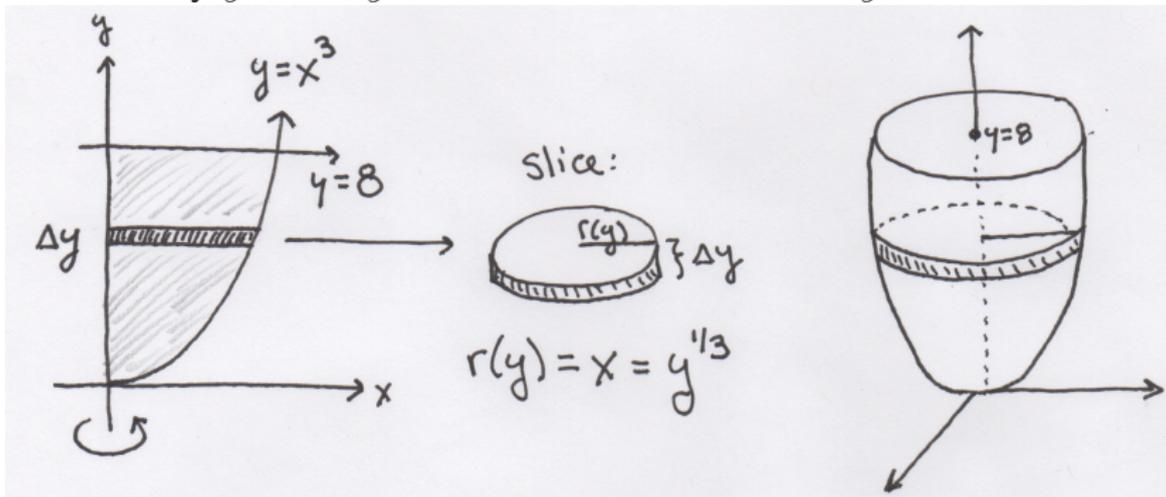 y
y=x³
y=8
Δy
x
slice:
r(y)
Δy
r(y)=x=y^1/3
y=8